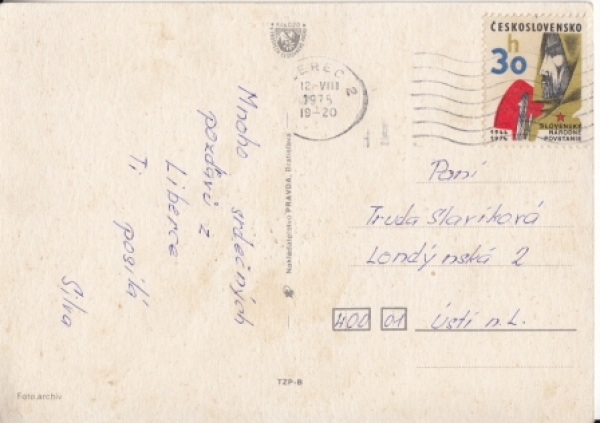 Mnoho srdečných
pozdravů z
Liberce
Ti posílá
Silva
Foto archiv
Nakladatelství PRAVDA, Bratislava
TZP-B
EREC 2
12.-VIII
1975
19-20
ČESKOSLOVENSKO
30 h
1944
1974
SLOVENSKÉ
NÁRODNÉ
POVSTANIE
Paní
Truda Slavíková
Londýnská 2
400 01 Ústí n.L.